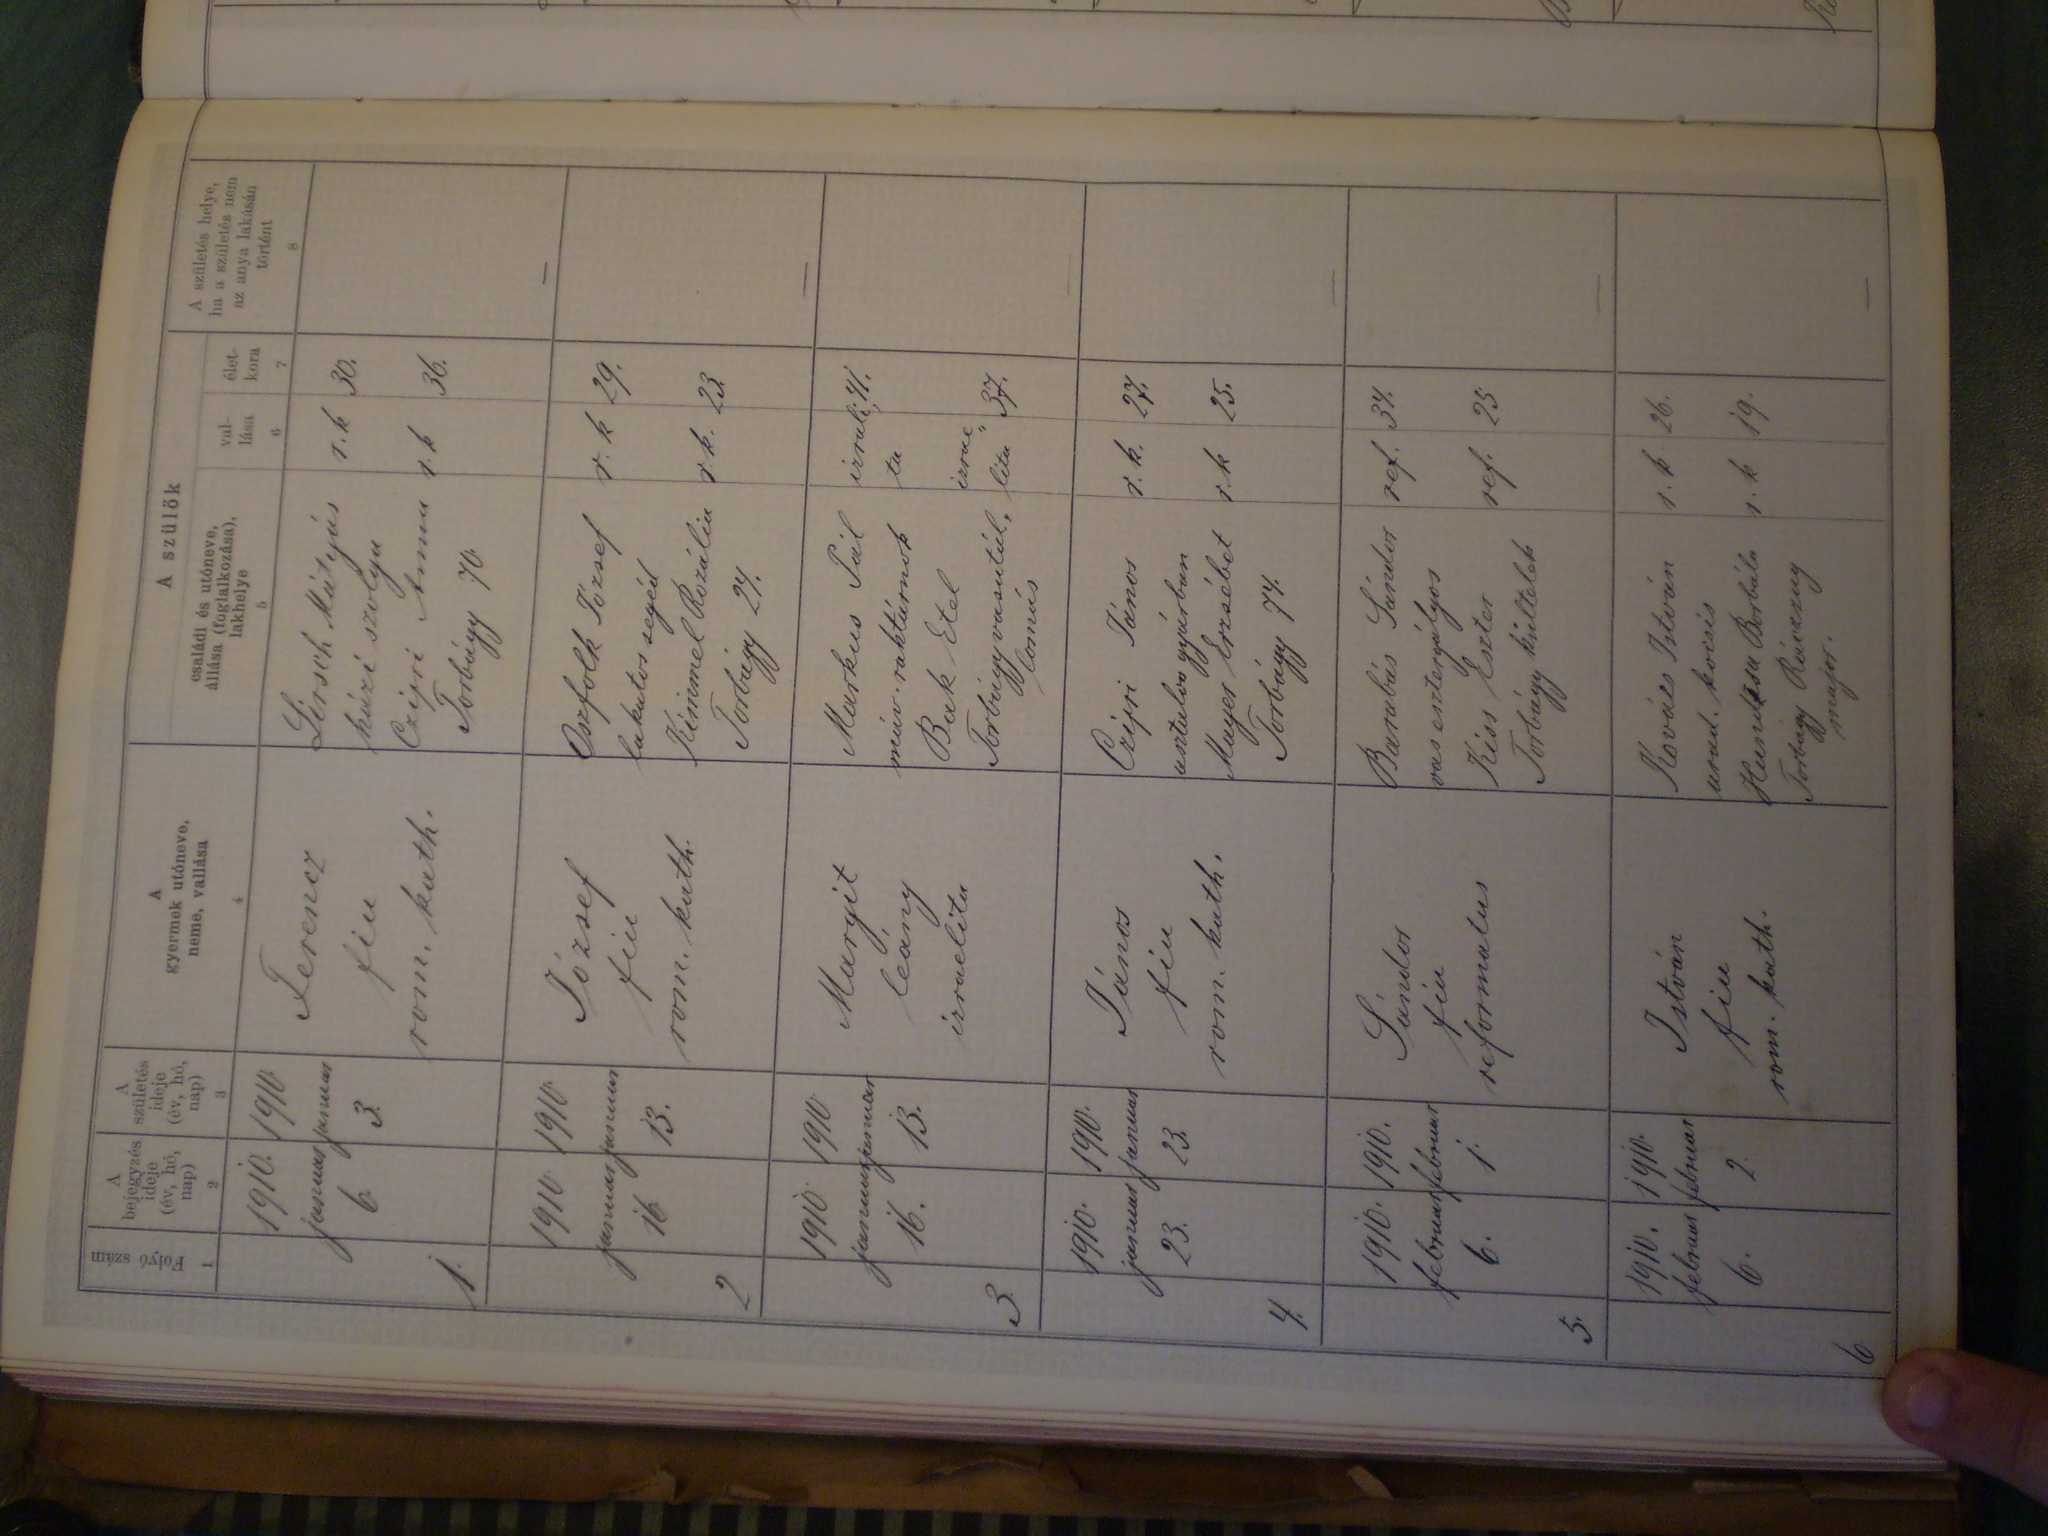 Folyó szám
A bejegyzés ideje (év, hó, nap)
A születés ideje (év, hó, nap)
A gyermek utóneve, neme, vallása
A szülők
családi és utóneve, állása (foglalkozása), lakhelye
vallása
életkora
A születés helye, ha a születés nem az anya lakásán történt
1 2 3 4 5 6 7 8
1.
1910.
január
6
1910.
január
3.
Ferencz
fiu
rom. kath.
Lirsch Mátyás r. k 30.
házi szolga
Czipri Anna r. k 36.
Torbágy 70.
—
2
1910.
január
16
1910.
január
13.
József
fiu
rom. kath.
Oszfolk József r. k 29.
lakatos segéd
Kimmel Rozália r. k. 23.
Torbágy 24.
—
3.
1910.
január
16.
1910.
január
13.
Margit
leány
izraelita
Markus Pál izraeli 41.
máv. raktárnok ta
Bak Etel izrae
Torbágy vasutál- lita 37.
lomás
—
4.
1910.
január
23.
1910.
január
23.
János
fiu
rom. kath.
Czipri János r. k. 27.
asztalos gyárban
Mayer Erzsébet r. k 25.
Torbágy 74.
—
5.
1910.
február
6.
1910.
február
1.
Sándor
fiu
reformatus
Barabás Sándor ref. 34.
vas esztergályos
Kiss Eszter ref. 25
Torbágy kültelek
—
6
1910.
február
6.
1910.
február
2.
István
fiu
rom. kath.
Kovács István r. k 26.
urad. kocsis
Borbála r. k 19.
Torbágy
major.
—